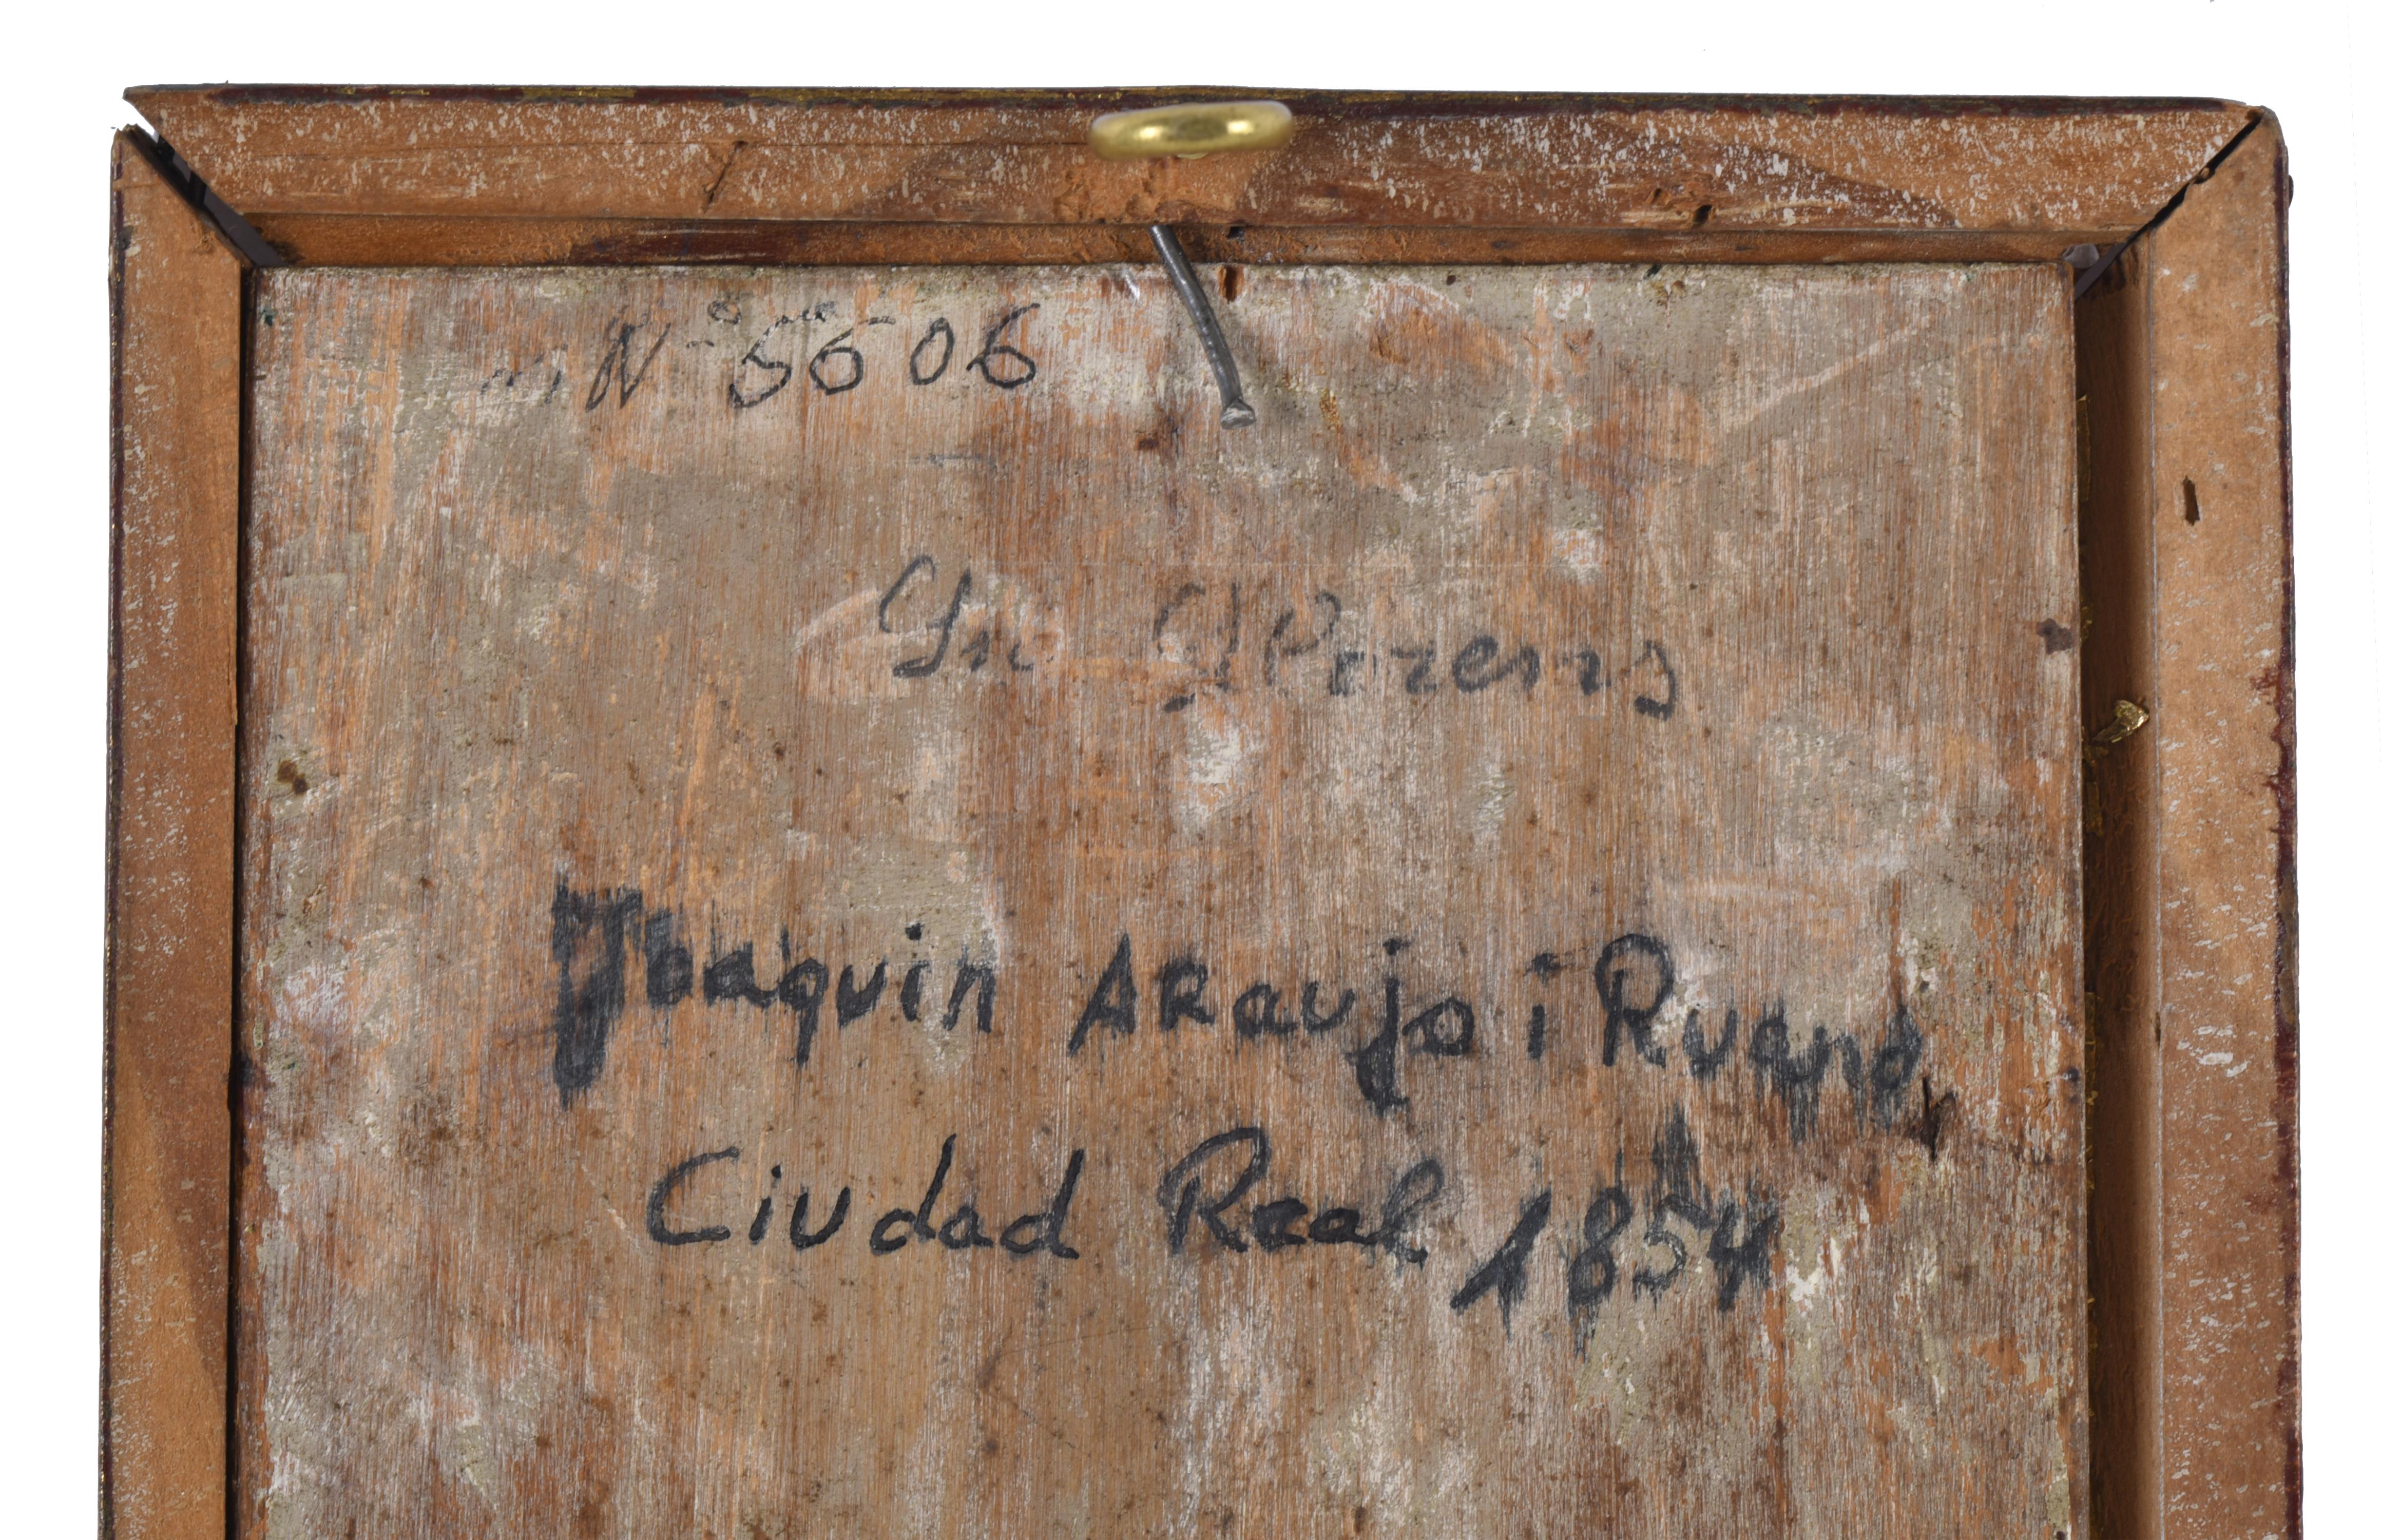 Nº 5606
Joaquin Araujo i Ruano
Ciudad Real 1854